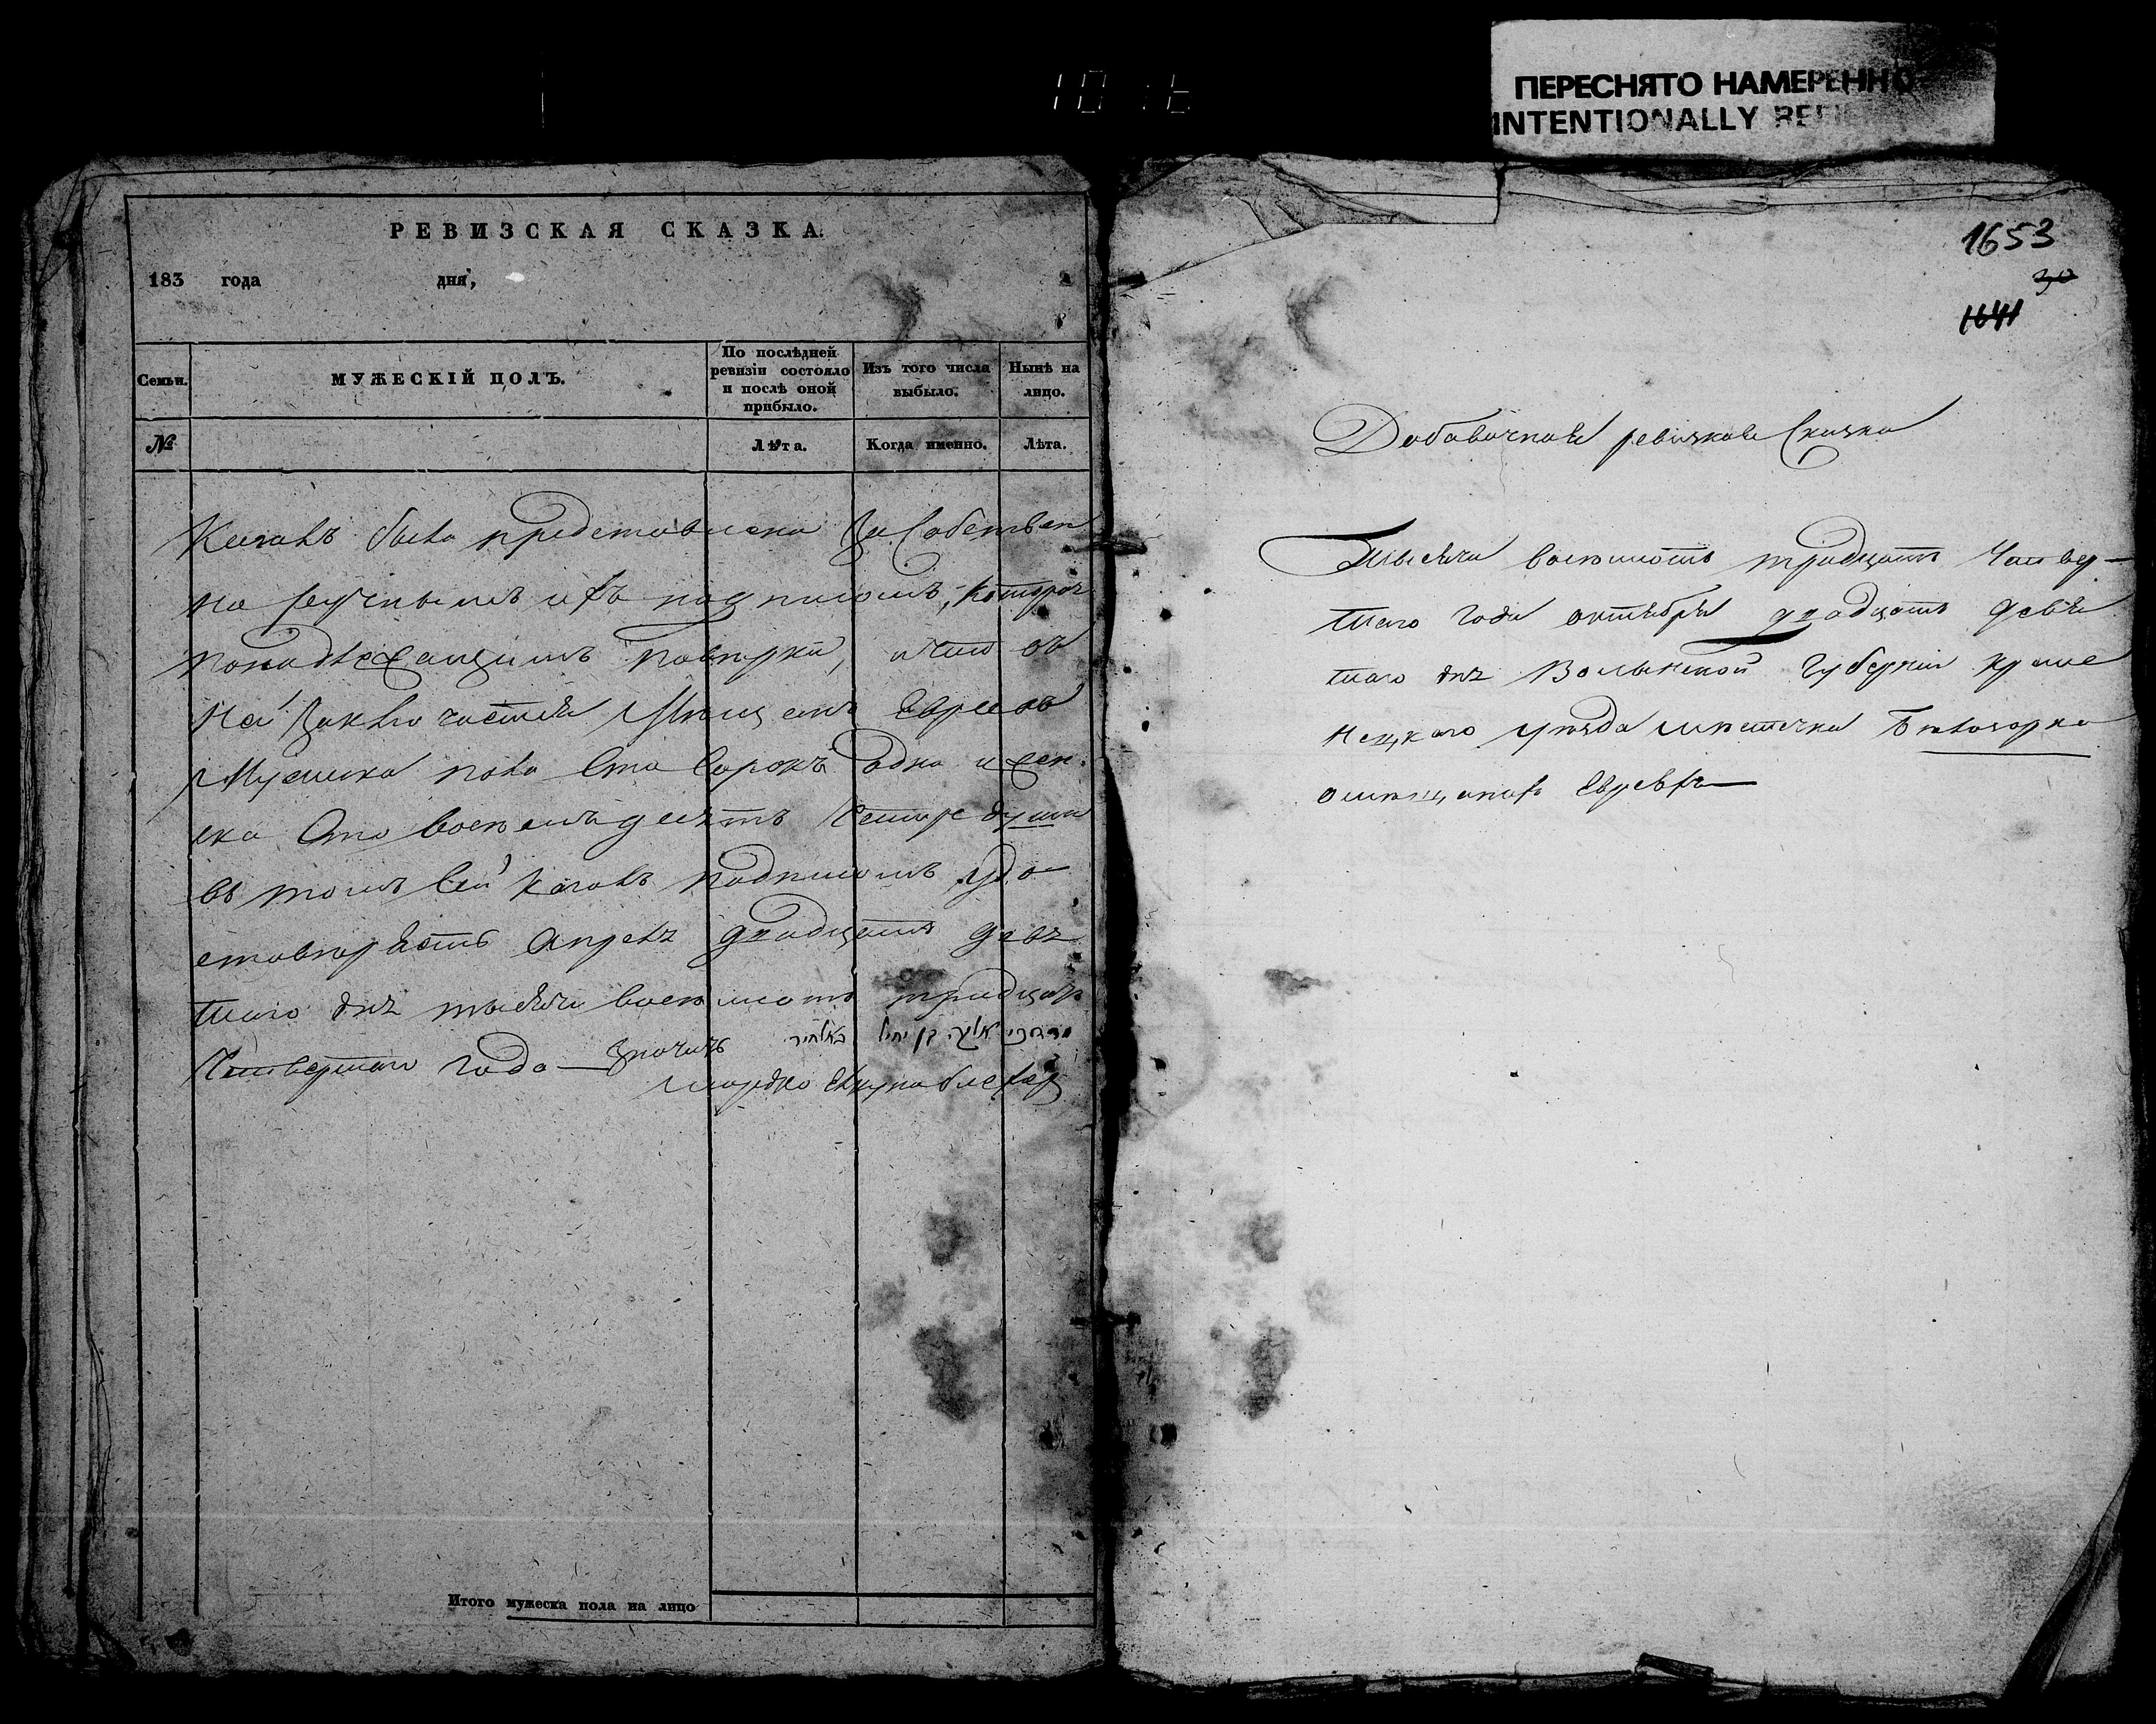 ПЕРЕСНЯТО НАМЕРЕННО
INTENTIONALLY
РЕВИЗСКАЯ СКАЗКА.
183 года дня,
Семьи. МУЖЕСКІЙ ПОЛЪ. По послѣдней ревизіи состояло и послѣ оной прибыло. Изъ того числа выбыло. Нынѣ на лицо.
№ Лѣта. Когда именно. Лѣта.
Кагалъ была представлена за собствен
но ручнымъ ихъ подписомъ,
повѣрки, и что въ
ней заключается мѣщанъ Евреевъ
Мужеска пола сто сорокъ одна и жен
ска сто восемьдесятъ четыре души
въ томъ сей кагалъ подписомъ удо
стовѣряетъ Апреля двадцать девя
таго дня тысяча восемьсотъ тридцать
Четвертаго года
Итого мужеска пола на лицо
1653
30
1641
Добавочная ревизкая Сказка
Тысяча восемьсотъ тридцать Четвер-
таго года октября двадцать девя
таго дня Волынской Губерніи Креме
нецкаго уѣзда мѣстечка Бѣлозорка
о мѣщанахъ Евреяхъ